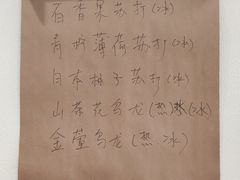 百香果苏打(冰)
青柠薄荷苏打(冰)
日本柚子苏打(冰)
山茶花乌龙(热)(冰)
金萱乌龙(热 冰)